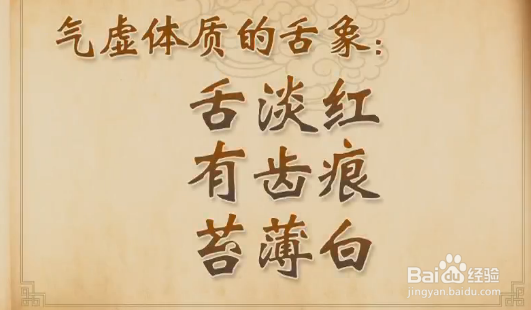 气虚体质的舌象：
舌淡红
有齿痕
苔薄白
Baidu经验
jingyan.baidu.com